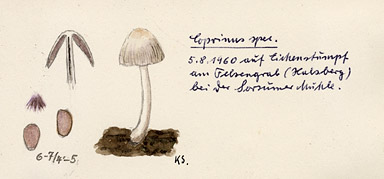 Coprinus spec.
5.8.1960 auf Eichenstumpf
am Felsengrab (Halsberg)
bei der Sorsumer Mühle.
6-7/4-5
KS.